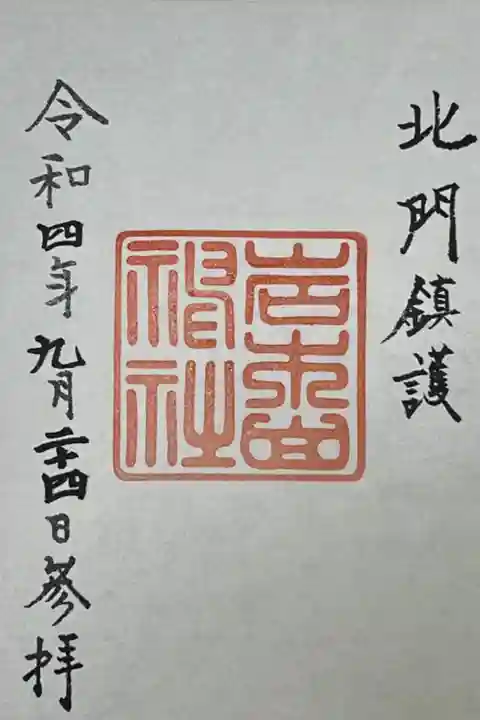 北門鎮護
岩木山
神社
令和四年九月二十四日參拝